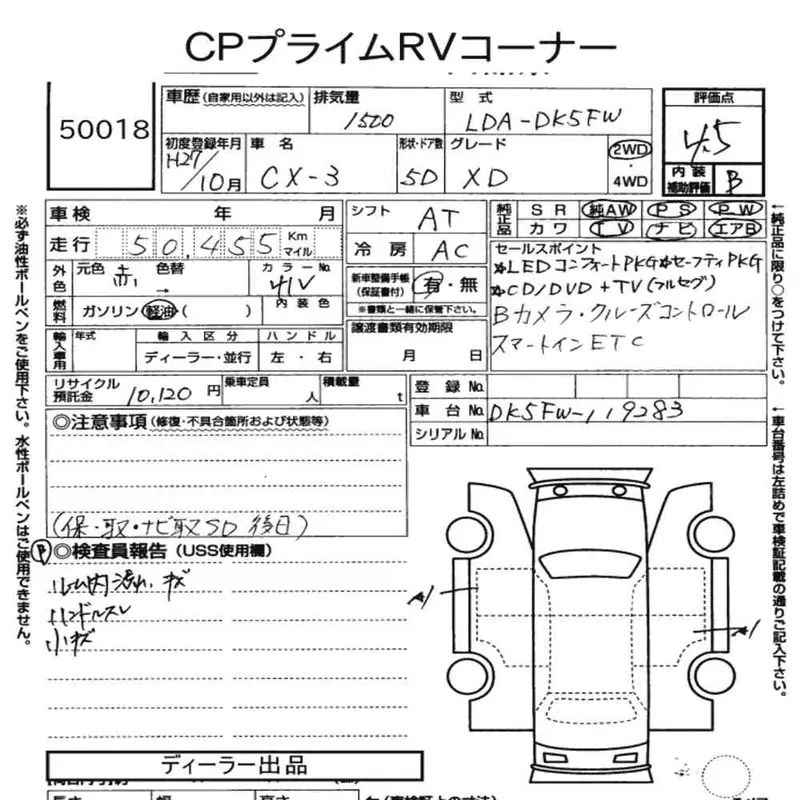 CPプライムRVコーナー
50018
車歴 (自家用以外は記入) 排気量 1500 型式 LDA-DK5FW
評価点 4.5
内装補助評価 B
初度登録年月 H27/10月 車名 CX-3 形状・ドア数 5D グレード XD 2WD・4WD
車検 年 月
シフト AT
純正品 SR 純AW PS PW
カワ TV ナビ エアB
走行 50,455 Km マイル
冷房 AC
セールスポイント
*LEDコンフォートPKG*セーフティPKG
*CD/DVD+TV(フルセグ)
Bカメラ・クルーズコントロール
スマートインETC
外色 元色 赤 色替 → カラーNo. 41V
新車整備手帳(保証書付) 有・無
※書類と一緒に保管下さい。
燃料 ガソリン・軽油・( ) 内装色
輸入車用 年式 輸入区分 ハンドル
ディーラー・並行 左・右
譲渡書類有効期限
月 日
リサイクル預託金 10,120円 乗車定員 人 積載量 t
登録No.
車台No. DK5FW-119283
シリアルNo.
◎注意事項 (修復・不具合箇所および状態等)
(保・取・ナビ取SD 後日)
◎検査員報告 (USS使用欄)
ルム内汚れ、キズ
ハンドルスレ
小キズ
A1
A1
ディーラー出品
※必ず油性ボールペンをご使用下さい。水性ボールペンはご使用できません。
←純正品に限り○をつけて下さい。
←車台番号は左詰めで車検証記載の通りご記入下さい。